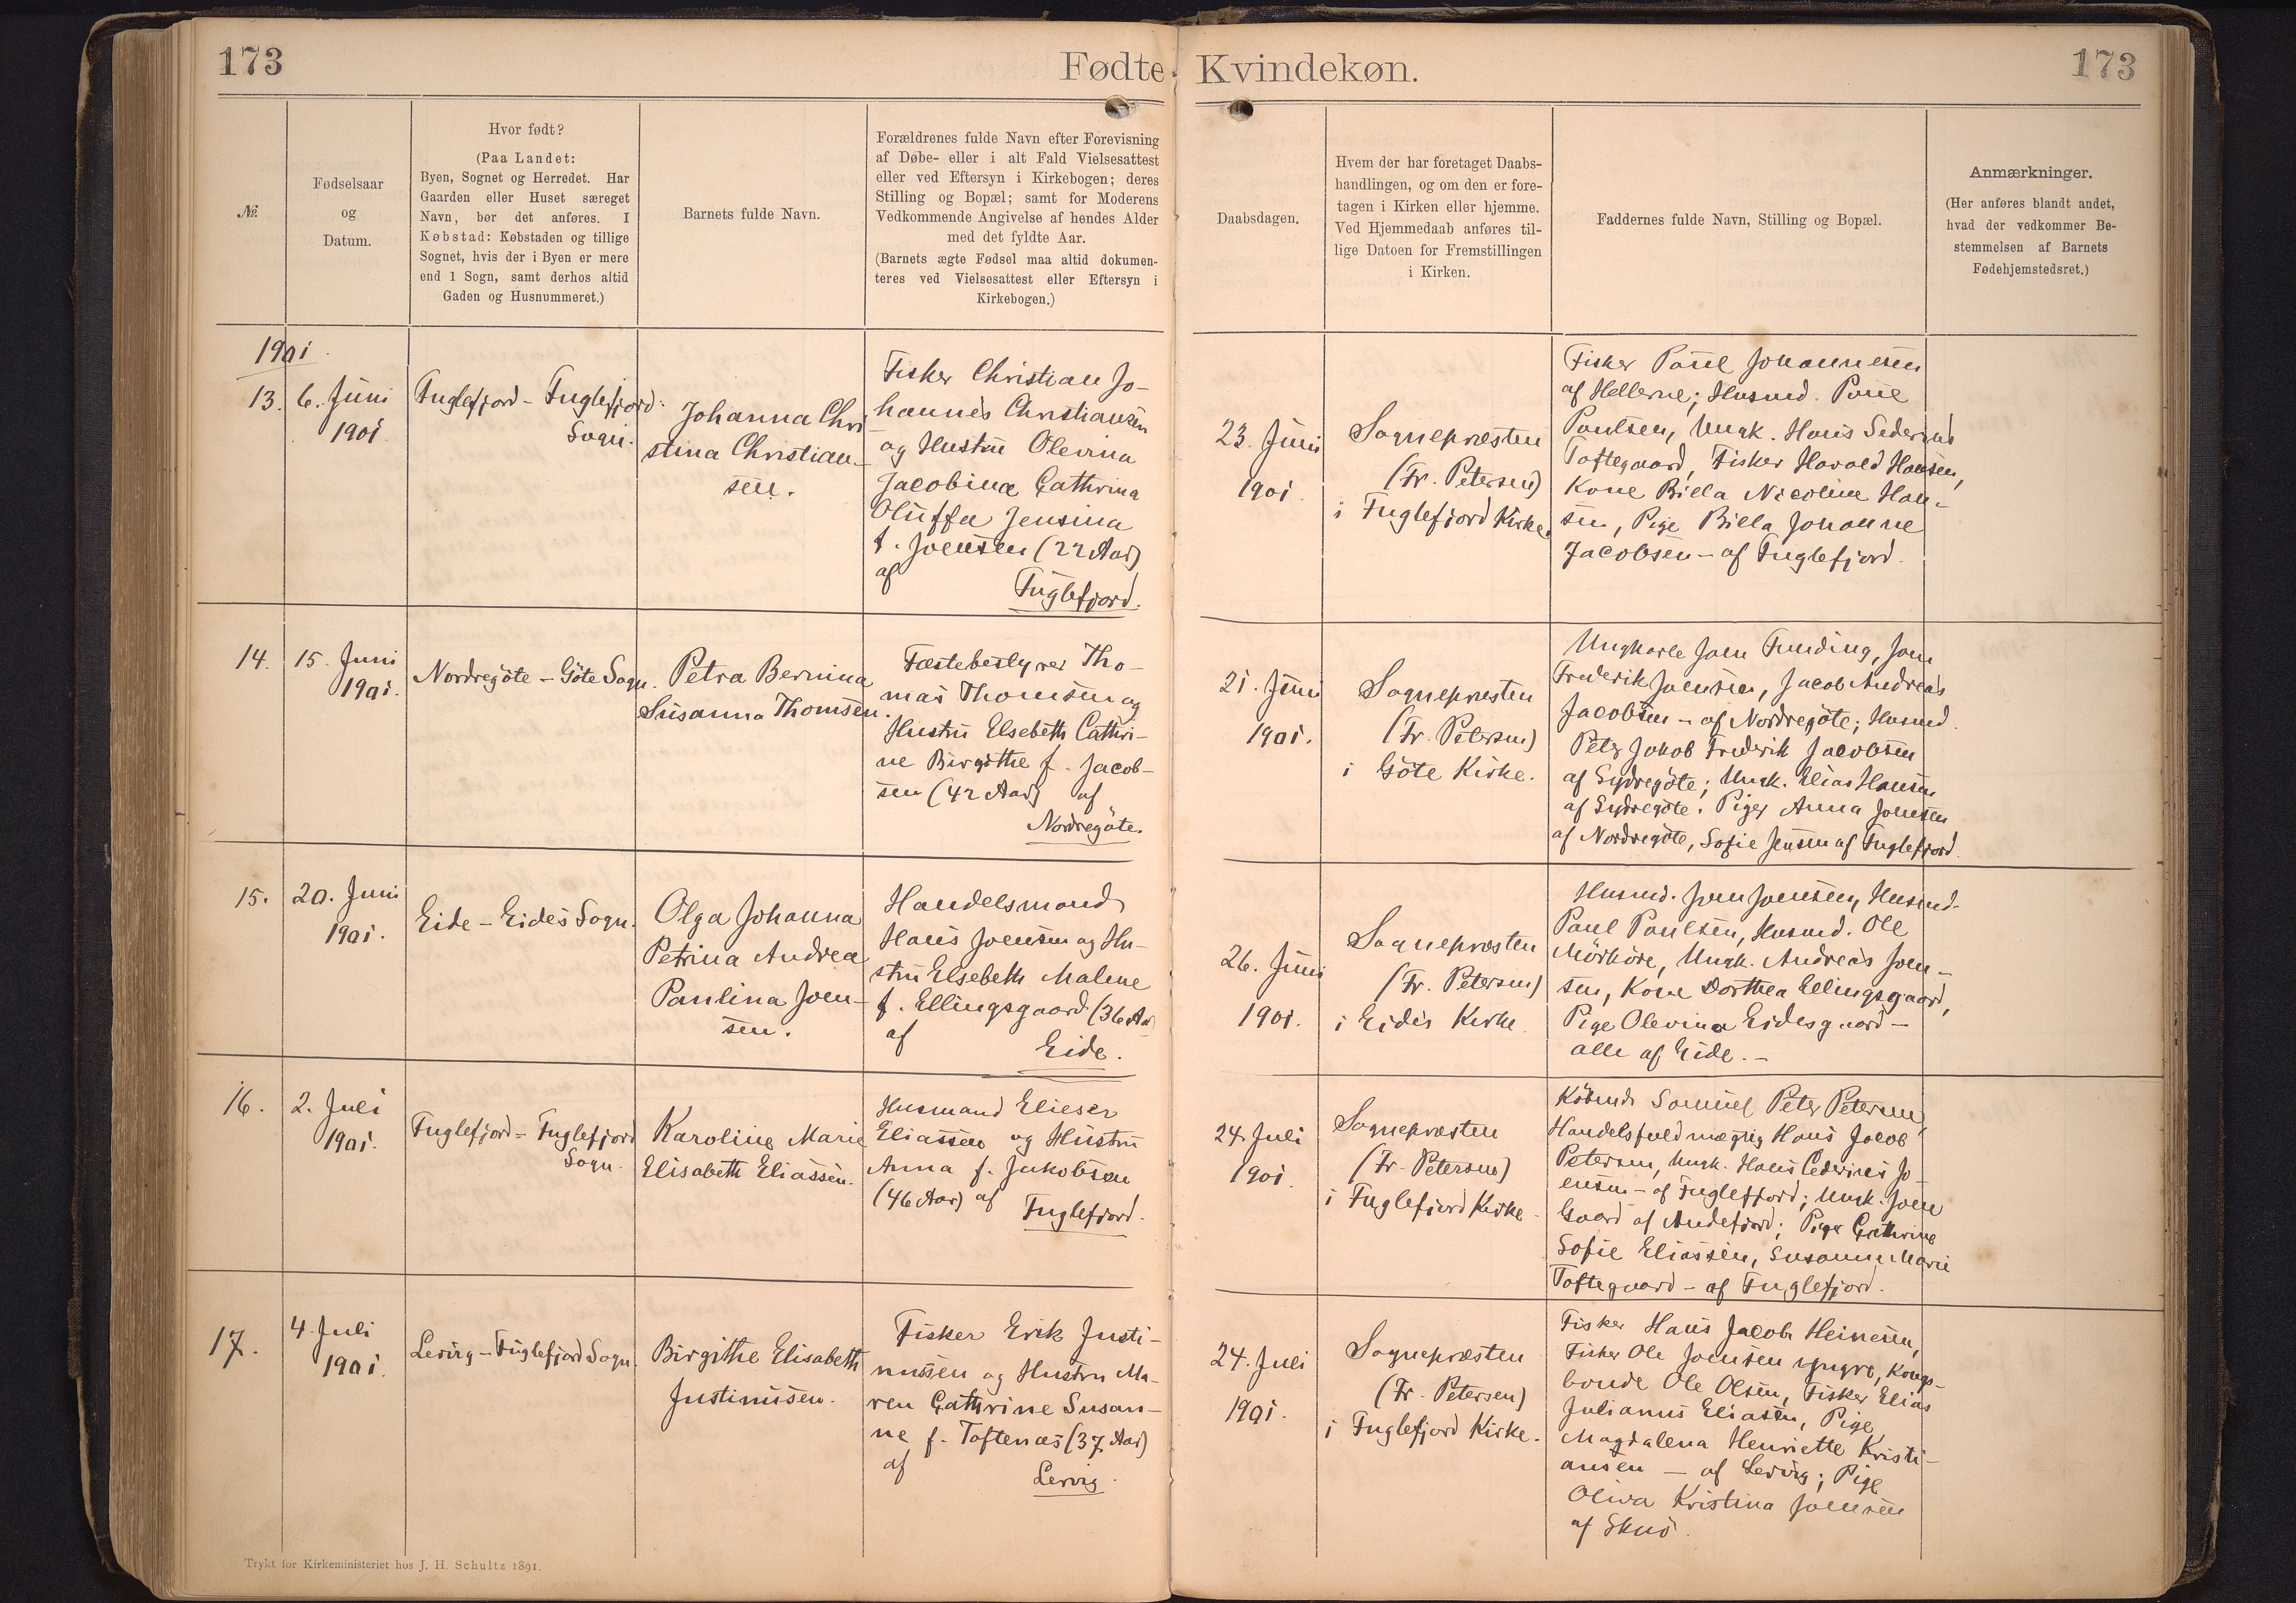 173
Fødte
Kvindekøn.
173
№
Fødselsaar
og
Datum.
Hvor født?
(Paa Landet:
Byen, Sognet og Herredet. Har
Gaarden eller Huset særeget
Navn, bør det anføres. I
Købstad: Købstaden og tillige
Sognet, hvis der i Byen er mere
end 1 Sogn, samt derhos altid
Gaden og Husnummeret.)
Barnets fulde Navn.
Forældrenes fulde Navn efter Forevisning
af Døbe- eller i alt Fald Vielsesattest
eller ved Eftersyn i Kirkebogen; deres
Stilling og Bopæl; samt for Moderens
Vedkommende Angivelse af hendes Alder
med det fyldte Aar.
(Barnets ægte Fødsel maa altid dokumen-
teres ved Vielsesattest eller Eftersyn i
Kirkebogen.)
Daabsdagen.
Hvem der har foretaget Daabs-
handlingen, og om den er fore-
tagen i Kirken eller hjemme.
Ved Hjemmedaab anføres til-
lige Datoen for Fremstillingen
i Kirken.
Faddernes fulde Navn, Stilling og Bopæl.
Anmærkninger.
(Her anføres blandt andet,
hvad der vedkommer Be-
stemmelsen af Barnets
Fødehjemstedsret.)
1901.
13.
6. Juni
1901.
Fuglefjord - Fuglefjord
Sogn.
Johanna Chri
stina Christian-
sen.
Fisker Christian Jo-
hannes Christiansen
og Hustru Olevina
Jacobina Cathrina
Oluffa Jensina
f. Joensen (22 Aar)
af
Fuglefjord.
23. Juni
1901.
Sognepræsten
(Fr. Petersen)
i Fuglefjord Kirke.
Fisker Poul Johannesen
af Hellerne; Husmd. Poul
Poulsen, Ungk. Hans Sederius
Toftegaard, Fisker Harald Hansen,
Kone Billa Nicoline Han-
sen, Pige Billa Johanne
Jacobsen - af Fuglefjord.
14.
15. Juni
1901.
Nordregöte - Göte Sogn.
Petra Bernina
Susanna Thomsen.
Fæstebestyrer Tho-
mas Thomsen og
Hustru Elsebeth Cathri-
ne Birgithe f. Jacob-
sen (42 Aar) af
Nordregöte.
21. Juni
1901.
Sognepræsten
(Fr. Petersen)
i Göte Kirke.
Ungkarle Joen Funding, Joen
Frederik Joensen, Jacob Andreas
Jacobsen - af Nordregöte; Husmd.
Peter Jakob Frederik Jacobsen
af Sydregöte; Ungk. Elias Hansen
af Sydregöte. Piger Anna Joensen
af Nordregöte, Sofie Jensen af Fuglefjord.
15.
20. Juni
1901.
Eide - Eides Sogn.
Olga Johanna
Petrina Andrea
Paulina Joen-
sen.
Handelsmand
Hans Joensen og Hu-
stru Elsebeth Malene
f. Ellingsgaard (36 Aar)
af
Eide.
26. Juni
1901.
Sognepræsten
(Fr. Petersen)
i Eides Kirke.
Husmd. Joen Joensen, Husmd.
Paul Poulsen, Husmd. Ole
Mörköre, Ungk. Andreas Joen-
sen, Kone Dorthea Ellingsgaard,
Pige Olevina Eidesgaard -
alle af Eide. -
16.
2. Juli
1901.
Fuglefjord - Fuglefjord
Sogn.
Karoline Marie
Elisabeth Eliassen.
Husmand Elieser
Eliassen og Hustru
Anna f. Jakobsen
(46 Aar) af
Fuglefjord.
24. Juli
1901.
Sognepræsten
(Fr. Petersen)
i Fuglefjord Kirke.
Købmd. Samuel Peter Petersen,
Handelsfuldmægtig Hans Jacob
Petersen, Ungk. Hans Cederius Jo-
ensen - af Fuglefjord; Ungk. Joen
Gaard af Andefjord; Piger Cathrine
Sofie Eliassen, Susanne Marie
Toftegaard - af Fuglefjord.
17.
4. Juli
1901.
Lervig - Fuglefjord Sogn.
Birgithe Elisabeth
Justinussen.
Fisker Erik Justi-
nussen og Hustru Ma-
ren Cathrine Susan-
ne f. Toftenæs (37 Aar)
af
Lervig.
24. Juli
1901.
Sognepræsten
(Fr. Petersen)
i Fuglefjord Kirke.
Fisker Hans Jacob Heinesen,
Fisker Ole Joensen yngre, Kongs-
bonde Ole Olsen, Fisker Elias
Julianus Eliasen, Pige
Magdalena Henriette Kristi-
ansen - af Lervig; Pige
Oliva Kristina Joensen
af
Trykt for Kirkeministeriet hos J. H. Schultz 1891.